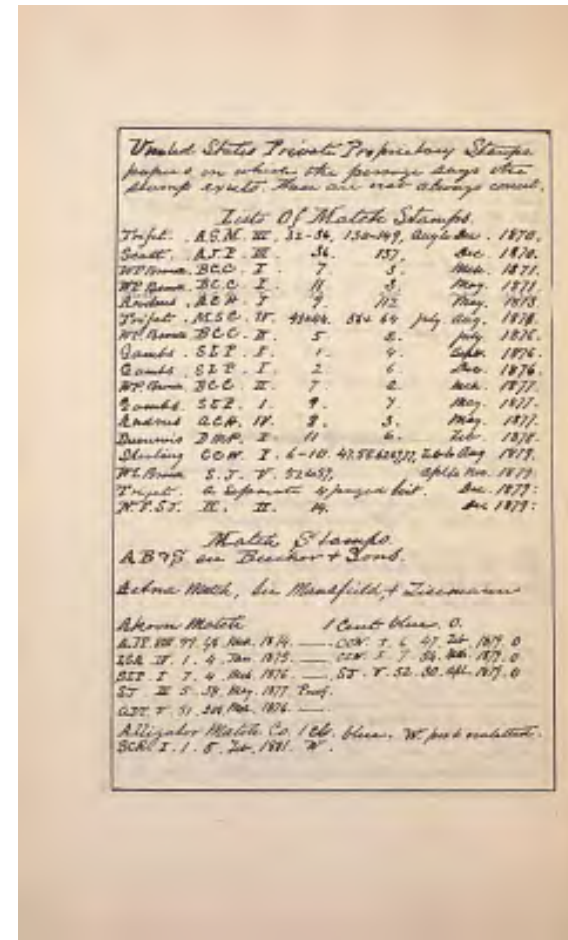 United States Private Proprietary Stamps
papers in which the passage says the
stamp exists. These are not always correct.
Lists Of Match Stamps.
Trifet. A.S.M. III. 32-36, 130-149, Aug to Dec. 1870.
Scott. A.J.P. III. 36. 137, Dec. 1870.
W.P. Brown. B.C.C. I. 7 3. Mch. 1871.
W.P. Brown. B.C.C. I. 11 3. May. 1871
Andrus. A.C.H. I 9. 112 May. 1873
Trifet. M.S.C. IV. 43+44. 56+64 July Aug. 1876.
W.P. Brown B.C.C. II. 5 2. July. 1876.
Gambs. S.L.P. I. 1. 4. Sept. 1876
Gambs. S.L.P. I. 2 6. Dec. 1876
W.P. Brown. B.C.C. II. 7 2. Mch. 1877.
Gambs. S.L.P. I. 9. 7. May. 1877.
Andrus A.C.H. IV. 8. 3. May. 1877.
D.M.P. I. 11 6. Feb. 1878
Sterling C.C.N. I. 6-10. Feb to Aug 1879.
W.P. Brown S.J. V. 52 to 59, Apl to Nov. 1879.
Trifet. A Separate 4 paged list. Dec. 1879.
II. 14. Dec 1879.
Match Stamps.
A B & S see Beecher & Sons.
Aetna Match, See Mansfield, & Zisemann
Akron Match 1 Cent blue, O.
1874. — C.C.N. I. 6 47. Feb 1879. O
IV. 1. 4 Jan. 1875. — C.C.N. I 7 54. 1879. O
S.L.P I 7. 4 1876 — S.J. V. 52. 30. Apl. 1879. O
S.J. III 5. 38. May. 1877 Proof.
V. 51. 1876. —.
Alligator Match Co. 1 Ct. blue. W.
I. 1. 5. Feb. 1881. W.